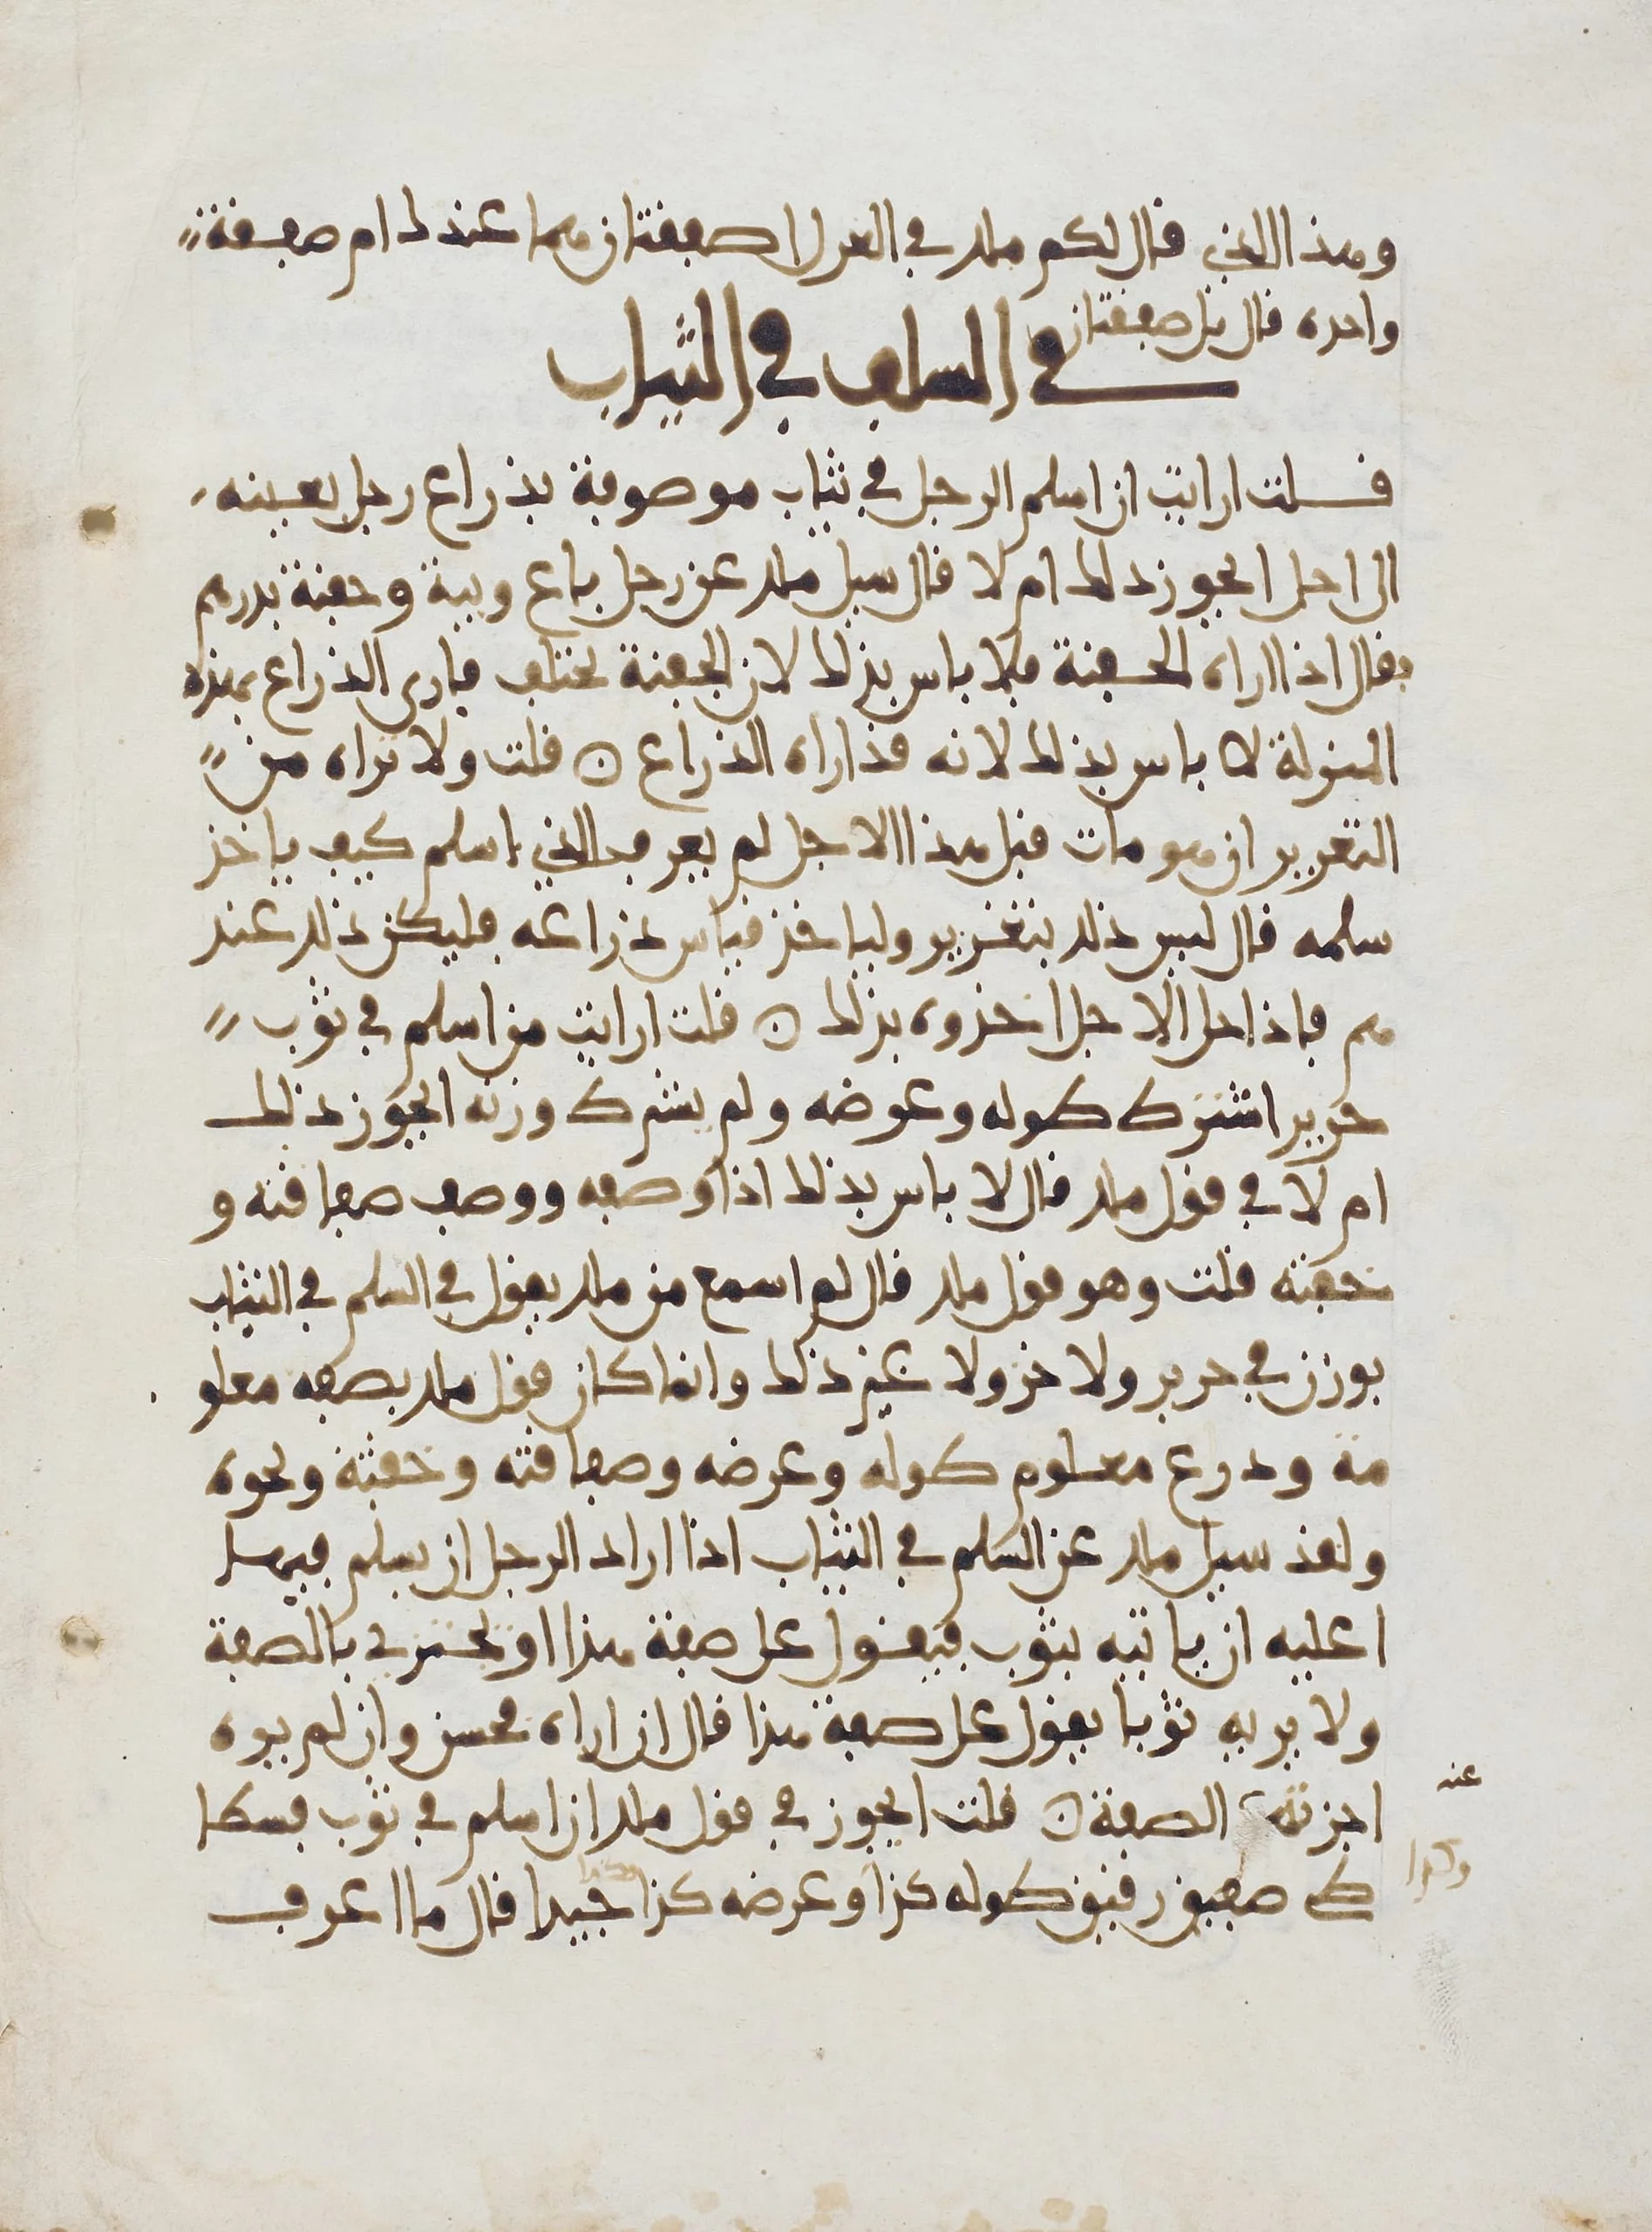 وهذا الذي قال لكم ملك في الغرر ا صفقتان هما عندك ام صفقة
واحده قال بل صفقتان
في السلف في الثياب
قلت ارايت ان اسلم الرجل في ثياب موصوفة بذراع رجل بعينه
الى اجل ايجوز ذلك ام لا قال سيل ملك عن رجل باع ويبة وحفنة بدرهم
فقال اذا اراه الحفنة فلا باس بذلك لان الحفنة تختلف فارى الذراع بهذه
المنزلة لا باس بذلك لانه قد اراه الذراع ه قلت ولا تراه من
التغرير ان هو مات قبل هذا الاجل لم يعرف الذي اسلم كيف ياخذ
سلمه قال ليس ذلك بتغرير ولياخذ قياس ذراعه فليكن ذلك عند
هم فاذا حل الاجل اخذوه بذلك ه قلت ارايت من اسلم في ثوب
حرير اشترط طوله وعرضه ولم يشترط وزنه ايجوز ذلك
ام لا في قول ملك قال لا باس بذلك اذا وصفه ووصف صفاقته و
خفته قلت وهو قول ملك قال لم اسمع من ملك يقول في السلم في الثياب
بوزن في حرير ولا خز ولا غير ذلك وانما كان قول ملك بصفه معلو
مة وذرع معلوم طوله وعرضه وصفاقته وخفته ونحوه
ولقد سيل ملك عن السلم في الثياب اذا اراد الرجل ان يسلم فيها
ا عليه ان ياتيه بثوب فيقول على صفة هذا او يجتزي بالصفة
ولا يريه ثوبا يقول على صفة هذا قال ان اراه فحسن وان لم يره
اجزته الصفة ه قلت ايجوز في قول ملك ان اسلم في ثوب فسطا
عنه
طي صفيق رقيق طوله كذا وعرضه كذا جيدا قال ما اعرف
وكذا